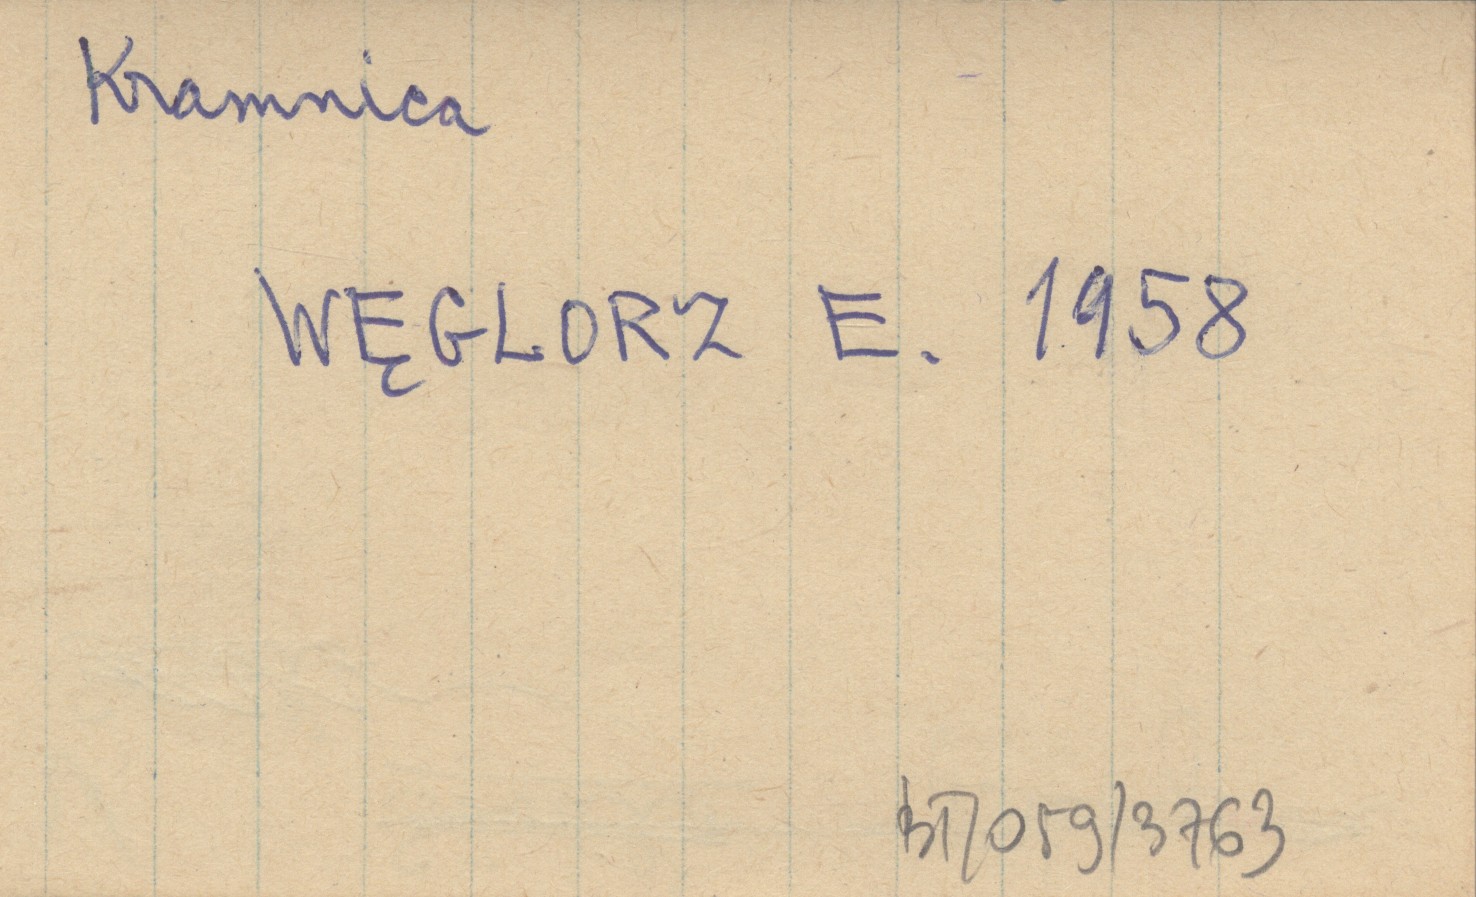 Kramnica
WĘGLORZ E. 1958
BT/059/3763